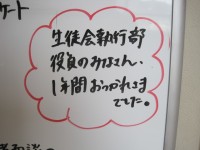 ケート
生徒会執行部
役員のみなさん、
1年間おつかれさま
でした。